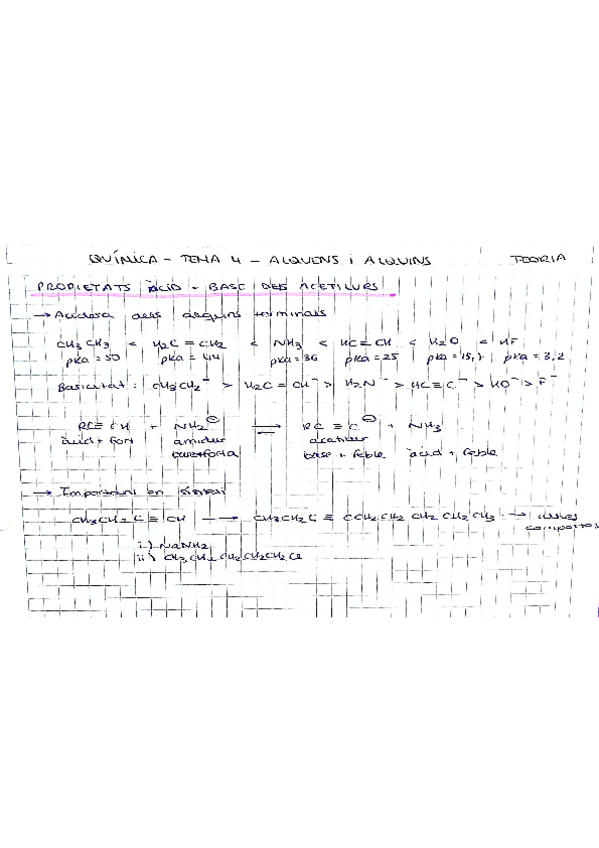 QUÍMICA - TEMA 4 - ALQUENS i ALQUINS TEORIA
PROPIETATS ÀCID - BASE DELS ACETILURS
→ Acidesa dels alquins terminals
CH3CH3 < H2C = CH2 < NH3 < HC≡CH < H2O < HF
pka = 50 pka = 44 pka = 36 pka = 25 pka = 15,7 pka = 3,2
Basicitat: CH3CH2⁻ > H2C = CH⁻ > H2N⁻ > HC≡C⁻ > HO⁻ > F⁻
RC≡CH + NH2⊖ ⇌ RC≡C⊖ + NH3
àcid + fort amidur acetilur
base + forta base + feble àcid + feble
→ Important en síntesi
CH3CH2C≡CH → CH3CH2C≡CCH2CH2CH2CH2CH3 →
compostos
i) NaNH2
ii) CH3CH2CH2CH2CH2Cl